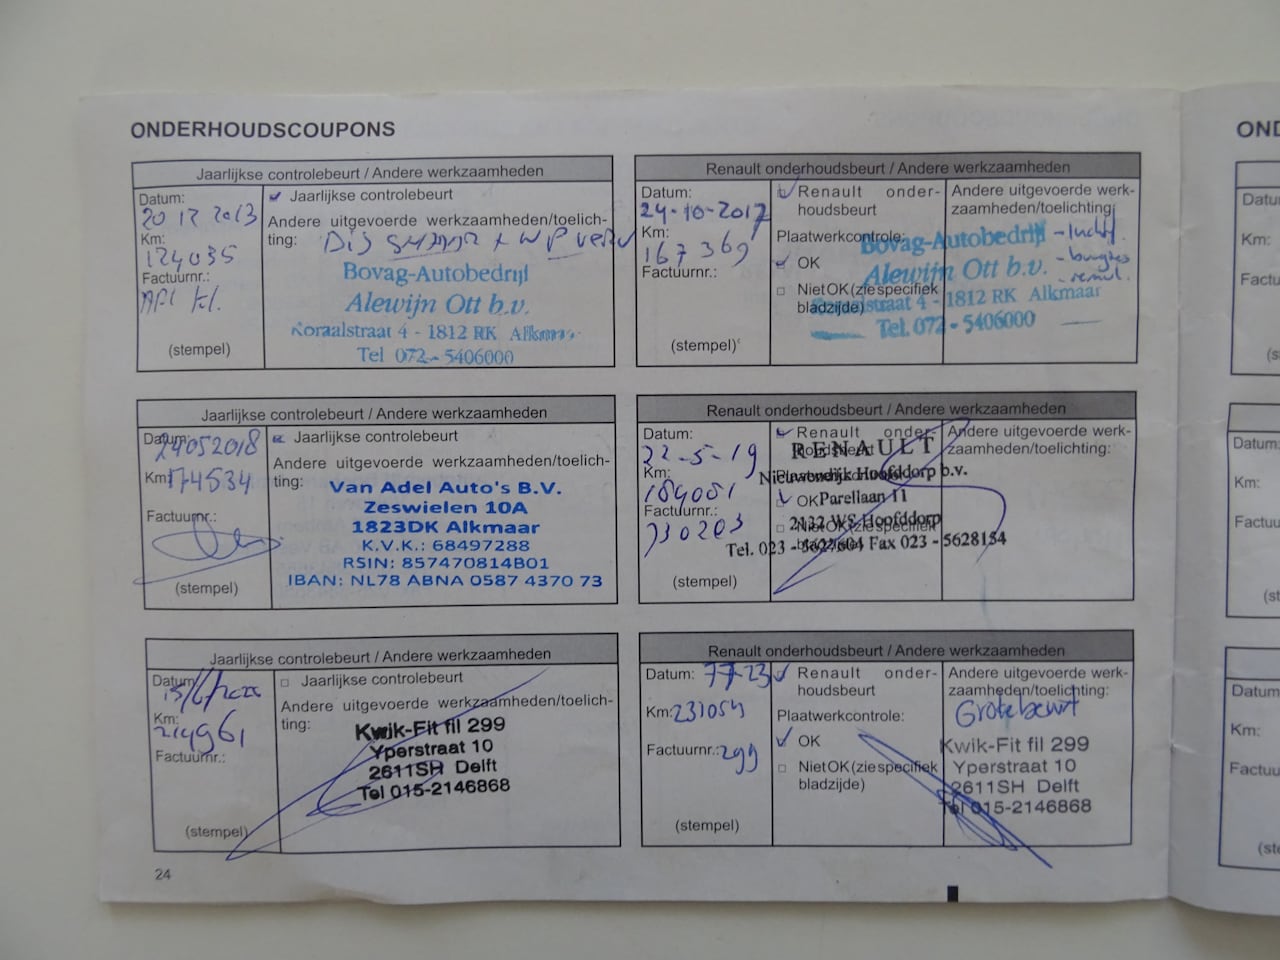 ONDERHOUDSCOUPONS
Jaarlijkse controlebeurt / Andere werkzaamheden
Datum:
20 12 2013
Km:
124035
Factuurnr.:
APL
(stempel)
Jaarlijkse controlebeurt
Andere uitgevoerde werkzaamheden/toelich-
ting: Dis + WP
Bovag-Autobedrijf
Alewijn Ott b.v.
Koraalstraat 4 - 1812 RK Alkmaar
Tel 072 - 5406000
Renault onderhoudsbeurt / Andere werkzaamheden
Datum:
24-10-2017
Km:
167369
Factuurnr.:
(stempel)
Renault onder-
houdsbeurt
Plaatwerkcontrole:
OK
Niet OK (zie specifiek
bladzijde)
Andere uitgevoerde werk-
zaamheden/toelichting:
- bougies
Bovag-Autobedrijf
Alewijn Ott b.v.
Koraalstraat 4 - 1812 RK Alkmaar
Tel. 072 - 5406000
Jaarlijkse controlebeurt / Andere werkzaamheden
Datum:
24052018
Km:
174534
Factuurnr.:
(stempel)
Jaarlijkse controlebeurt
Andere uitgevoerde werkzaamheden/toelich-
ting:
Van Adel Auto's B.V.
Zeswielen 10A
1823DK Alkmaar
K.V.K.: 68497288
RSIN: 857470814B01
IBAN: NL78 ABNA 0587 4370 73
Renault onderhoudsbeurt / Andere werkzaamheden
Datum:
22-5-19
Km:
189051
Factuurnr.:
730203
(stempel)
Renault onder-
houdsbeurt
Plaatwerkcontrole:
OK
Niet OK (zie specifiek
bladzijde)
Andere uitgevoerde werk-
zaamheden/toelichting:
RENAULT
Nieuwendijk Hoofddorp b.v.
Parellaan 11
2132 WS Hoofddorp
Tel. 023 - 5627604 Fax 023 - 5628154
Jaarlijkse controlebeurt / Andere werkzaamheden
Datum:
Km:
214961
Factuurnr.:
(stempel)
Jaarlijkse controlebeurt
Andere uitgevoerde werkzaamheden/toelich-
ting:
Kwik-Fit fil 299
Yperstraat 10
2611SH Delft
Tel 015-2146868
Renault onderhoudsbeurt / Andere werkzaamheden
Datum: 7-7-23
Km: 231054
Factuurnr.: 299
(stempel)
Renault onder-
houdsbeurt
Plaatwerkcontrole:
OK
Niet OK (zie specifiek
bladzijde)
Andere uitgevoerde werk-
zaamheden/toelichting:
Grote beurt
Kwik-Fit fil 299
Yperstraat 10
2611SH Delft
Tel 015-2146868
24
OND
Datu
Km:
Factu
(s
Datum:
Km:
Factuu
(st
Datum:
Km:
Factuu
(ste